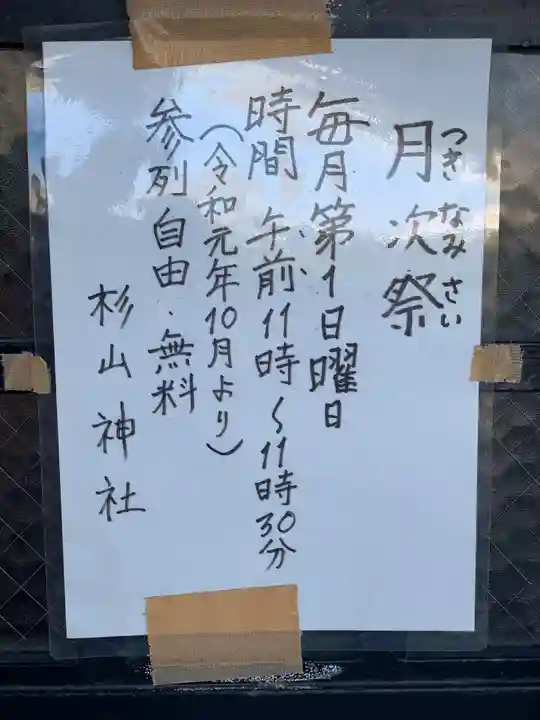 月次祭
つきなみさい
毎月第1日曜日
時間 午前11時〜11時30分
(令和元年10月より)
参列自由・無料
杉山神社